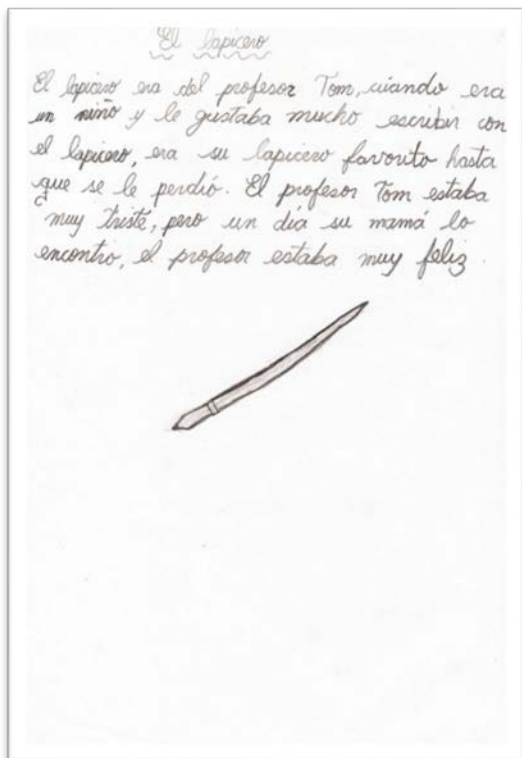 El lapicero
El lapicero era del profesor Tom, cuando era
un niño y le gustaba mucho escribir con
el lapicero, era su lapicero favorito hasta
que se le perdió. El profesor Tom estaba
muy triste, pero un día su mamá lo
encontro, el profesor estaba muy feliz.